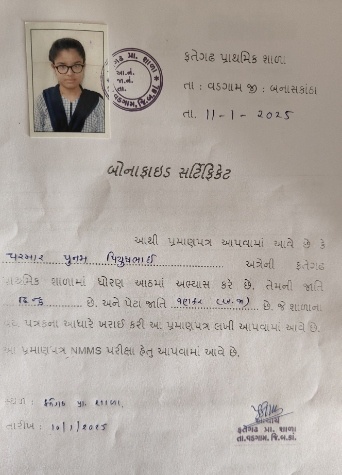 ફતેગઢ પ્રાથમિક શાળા
તા : વડગામ જી : બનાસકાંઠા
તા. 11-1-2025
બોનાફાઇડ સર્ટિફિકેટ
આથી પ્રમાણપત્ર આપવામાં આવે છે કે
પરમાર પુનમ પિયુષભાઈ અત્રેની ફતેગઢ
પ્રાથમિક શાળામાં ધોરણ આઠમાં અભ્યાસ કરે છે. તેમની જાતિ
હિન્દુ છે. અને પેટા જાતિ વણકર (અ.જા) છે. જે શાળાના
પત્રકના આધારે ખરાઈ કરી આ પ્રમાણપત્ર લખી આપવામાં આવે છે.
આ પ્રમાણપત્ર NMMS પરીક્ષા હેતુ આપવામાં આવે છે.
સ્થળ : ફતેગઢ પ્રા. શાળા.
તારીખ : 10/1/2025
આચાર્ય
ફતેગઢ પ્રા. શાળા
તા.વડગામ, જિ.બ.કાં.